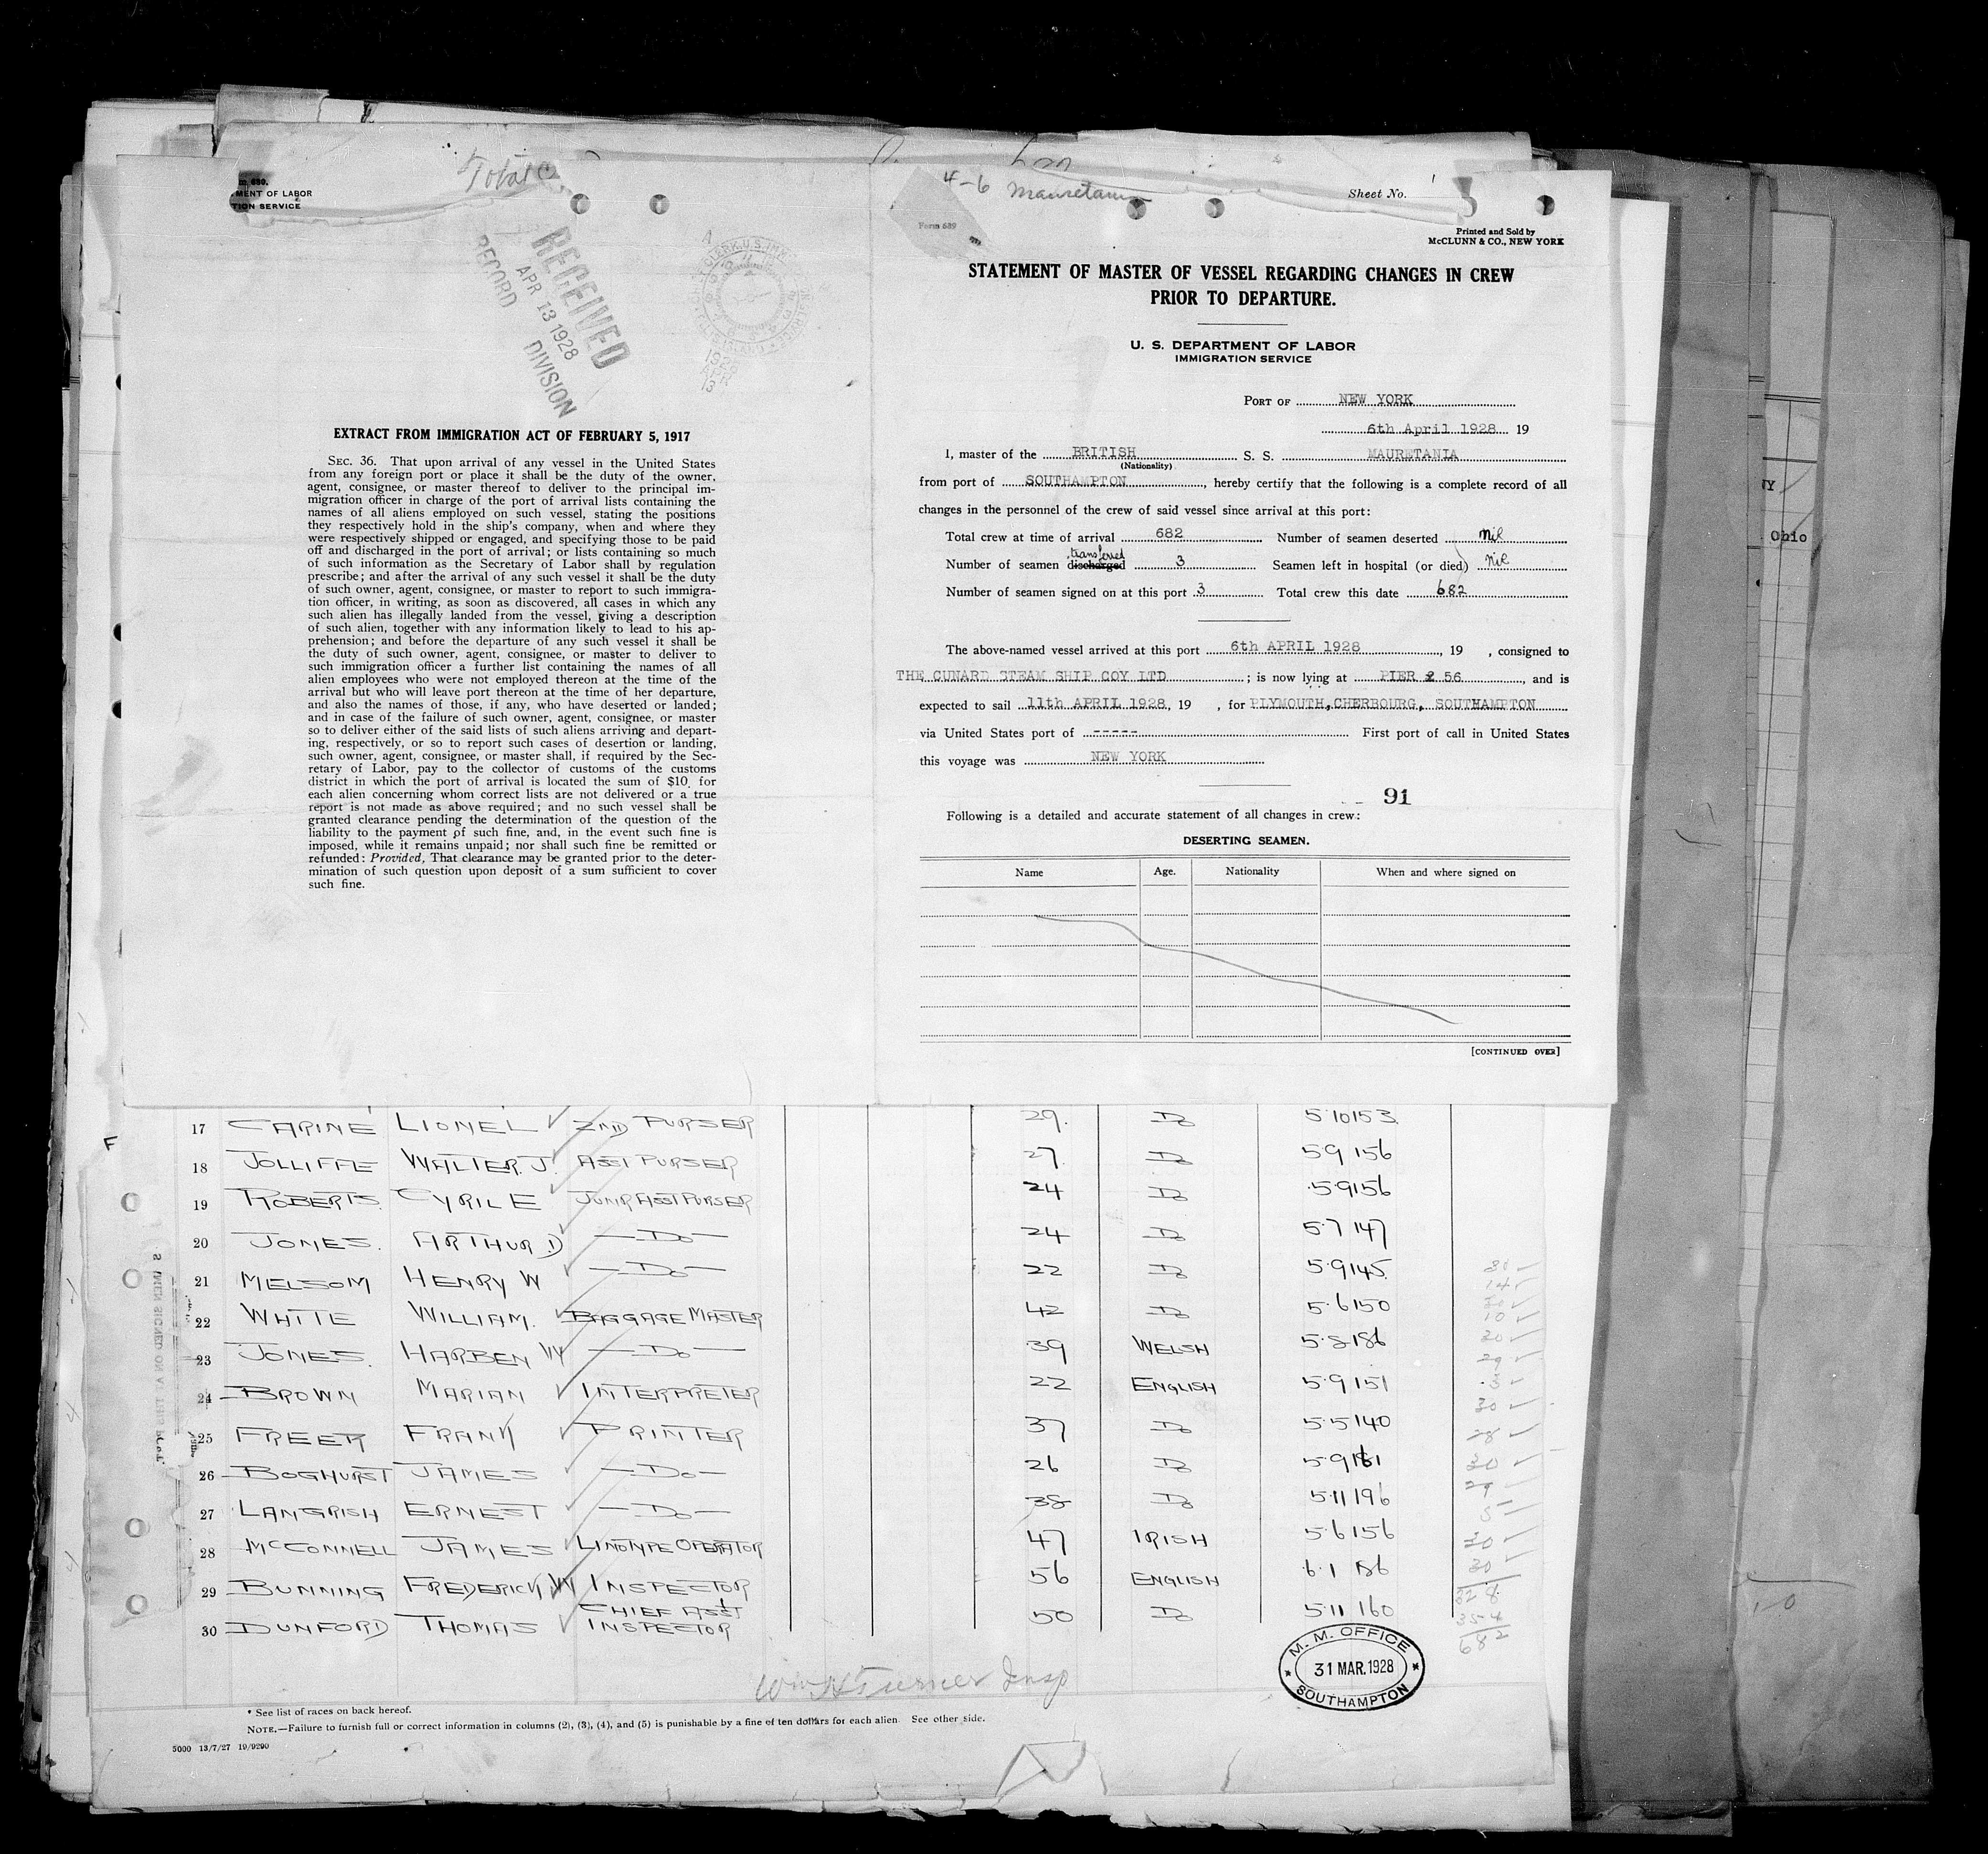 Total C
m 689.
MENT OF LABOR
TION SERVICE
RECEIVED
APR 13 1928
RECORD DIVISION
1928
APR
13
EXTRACT FROM IMMIGRATION ACT OF FEBRUARY 5, 1917
SEC. 36. That upon arrival of any vessel in the United States
from any foreign port or place it shall be the duty of the owner,
agent, consignee, or master thereof to deliver to the principal im-
migration officer in charge of the port of arrival lists containing the
names of all aliens employed on such vessel, stating the positions
they respectively hold in the ship's company, when and where they
were respectively shipped or engaged, and specifying those to be paid
off and discharged in the port of arrival; or lists containing so much
of such information as the Secretary of Labor shall by regulation
prescribe; and after the arrival of any such vessel it shall be the duty
of such owner, agent, consignee, or master to report to such immigra-
tion officer, in writing, as soon as discovered, all cases in which any
such alien has illegally landed from the vessel, giving a description
of such alien, together with any information likely to lead to his ap-
prehension; and before the departure of any such vessel it shall be
the duty of such owner, agent, consignee, or master to deliver to
such immigration officer a further list containing the names of all
alien employees who were not employed thereon at the time of the
arrival but who will leave port thereon at the time of her departure,
and also the names of those, if any, who have deserted or landed;
and in case of the failure of such owner, agent, consignee, or master
so to deliver either of the said lists of such aliens arriving and depart-
ing, respectively, or so to report such cases of desertion or landing,
such owner, agent, consignee, or master shall, if required by the Sec-
retary of Labor, pay to the collector of customs of the customs
district in which the port of arrival is located the sum of $10 for
each alien concerning whom correct lists are not delivered or a true
report is not made as above required; and no such vessel shall be
granted clearance pending the determination of the question of the
liability to the payment of such fine, and, in the event such fine is
imposed, while it remains unpaid; nor shall such fine be remitted or
refunded: Provided, That clearance may be granted prior to the deter-
mination of such question upon deposit of a sum sufficient to cover
such fine.
4-6 Mauretania
Sheet No. 1
Form 689
Printed and Sold by
McCLUNN & CO., NEW YORK
STATEMENT OF MASTER OF VESSEL REGARDING CHANGES IN CREW
PRIOR TO DEPARTURE.
U. S. DEPARTMENT OF LABOR
IMMIGRATION SERVICE
PORT OF NEW YORK
6th April 1928 19
I, master of the BRITISH S. S. MAURETANIA
(Nationality)
from port of SOUTHAMPTON, hereby certify that the following is a complete record of all
changes in the personnel of the crew of said vessel since arrival at this port:
Total crew at time of arrival 682 Number of seamen deserted nil
transferred
Number of seamen discharged 3 Seamen left in hospital (or died) nil
Number of seamen signed on at this port 3 Total crew this date 682
The above-named vessel arrived at this port 6th APRIL 1928, 19 , consigned to
THE CUNARD STEAM SHIP COY LTD ; is now lying at PIER 2 56, and is
expected to sail 11th APRIL 1928, 19 , for PLYMOUTH, CHERBOURG, SOUTHAMPTON
via United States port of ----- First port of call in United States
this voyage was NEW YORK
91
Following is a detailed and accurate statement of all changes in crew:
DESERTING SEAMEN.
Name Age. Nationality When and where signed on
[CONTINUED OVER]
NY
Ohio
F
17 CARINE LIONEL 2ND PURSER 29. Do 5·10 153
18 JOLLIFFE WALTER. J. ASST PURSER 27 Do 5 9 156
19 ROBERTS CYRIL E JUNR ASST PURSER 24 Do 5·9 156
20 JONES. ARTHUR D —Do— 24 Do 5·7 147
21 MELSOM HENRY W —Do— 22 Do 5·9 145
22 WHITE WILLIAM. BAGGAGE MASTER 42 Do 5·6 150
23 JONES. HARBEN W —Do— 39 WELSH 5·8 186
24 BROWN MARIAN INTERPRETER 22 ENGLISH 5·9 151
25 FREER FRANK PRINTER 37 Do 5·5 140
26 BOGHURST JAMES —Do— 26 Do 5·9 161
27 LANGRISH ERNEST —Do— 38 Do 5·11 196
28 McCONNELL JAMES LINOTYPE OPERATOR 47 IRISH 5·6 156
29 BUNNING FREDERICK W INSPECTOR 56 ENGLISH 6·1 186
CHIEF ASST
30 DUNFORD THOMAS INSPECTOR 50 Do 5·11 160
328
354
682
M. M. OFFICE
31 MAR. 1928
SOUTHAMPTON
Wm H Turner Insp
* See list of races on back hereof.
NOTE.—Failure to furnish full or correct information in columns (2), (3), (4), and (5) is punishable by a fine of ten dollars for each alien. See other side.
5000 13/7/27 19/9290